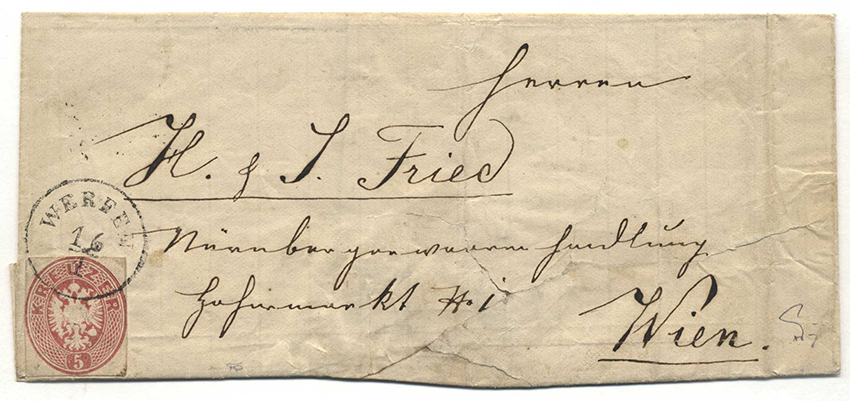 Herren
H. & J. Fried
Nürnbergerwaaren handlung
Hohenmarkt № 1
Wien.
WERFEN
16
1
KREUZER
5